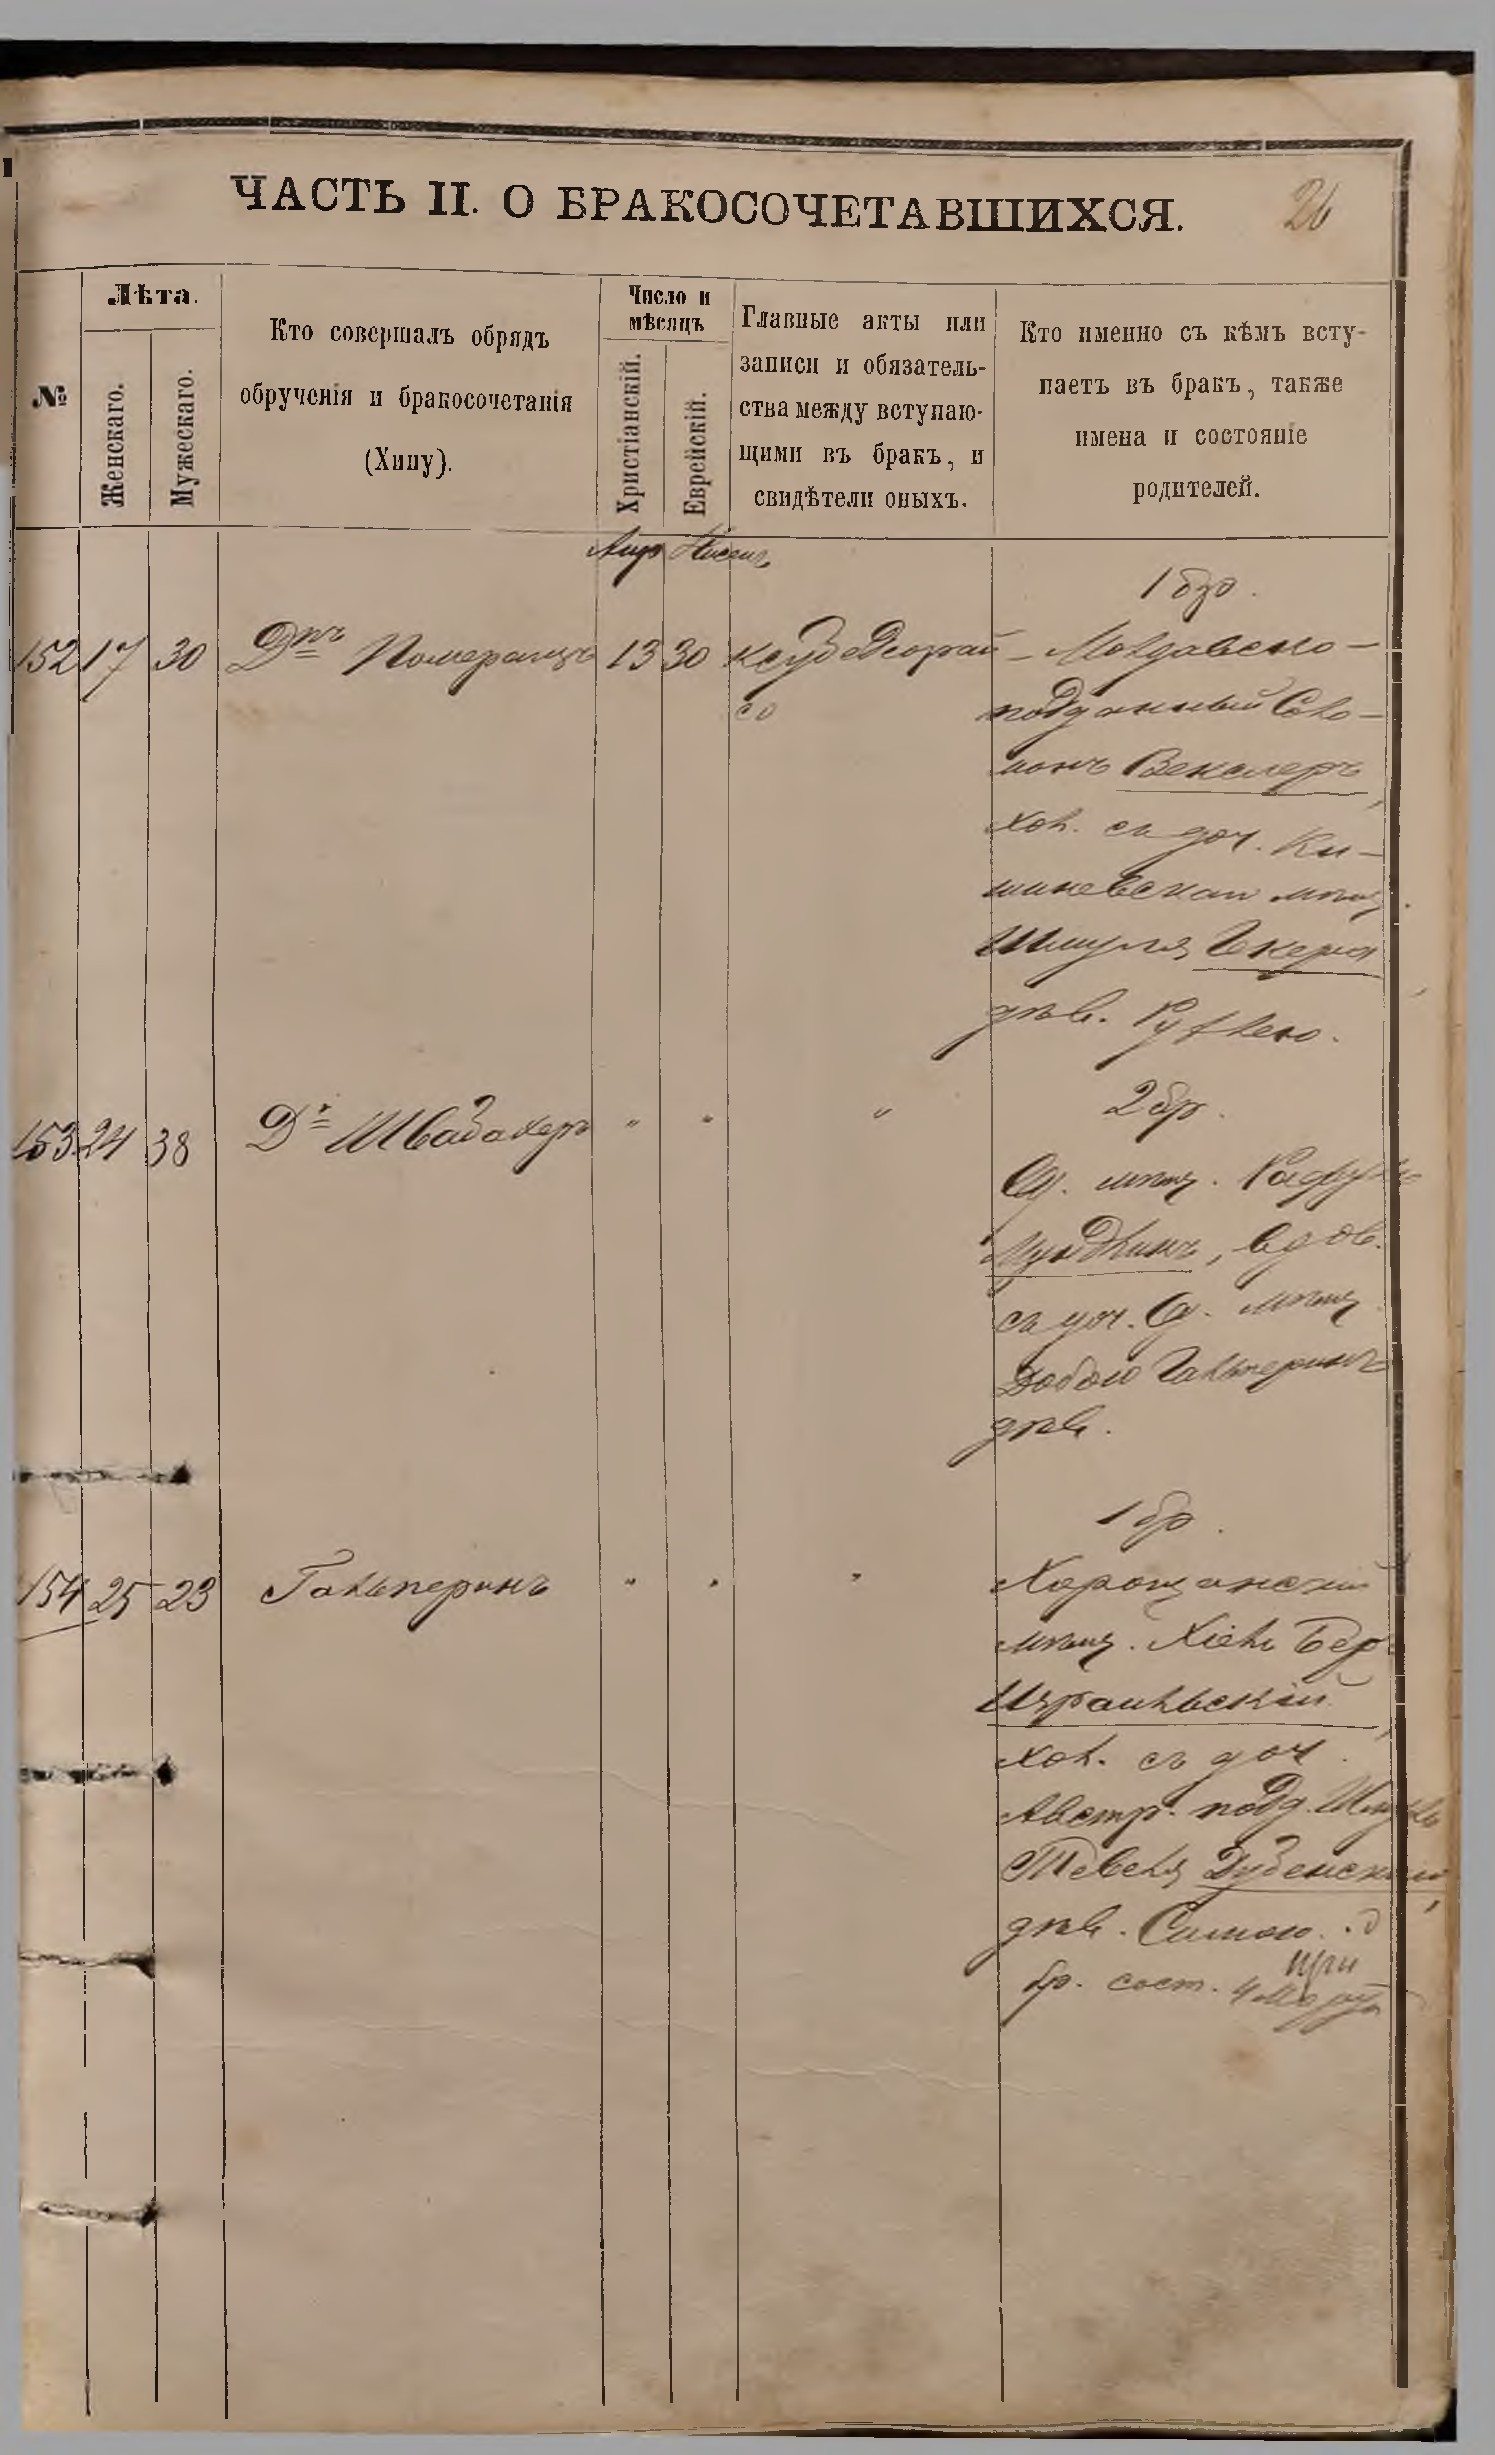 ЧАСТЬ II. О БРАКОСОЧЕТАВШИХСЯ.
26
№
Лѣта.
Женскаго.
Мужескаго.
Кто совершалъ обрядъ
обрученія и бракосочетанія
(Хипу).
Число и
мѣсяцъ
Христіанскій.
Еврейскій.
Главные акты или
записи и обязатель-
ства между вступаю-
щими въ бракъ, и
свидѣтели оныхъ.
Кто именно съ кѣмъ всту-
паетъ въ бракъ, также
имена и состояніе
родителей.
Апр Нисенъ
1 бр.
152 17 30 Дръ Померанцъ 13 30 – Молдавско-
подданный Соло-
монъ Векслеръ,
хол. съ доч. Ки-
шиневскаго мѣщ.
Шмуля
дѣв.
2 бр.
153 24 38 Др Швабахеръ " " "
Од. мѣщ.
вдов.
съ доч. Од. мѣщ.
Гальперинъ
дѣв.
1 бр.
154 25 23 Гальперинъ " " "
Хорощанскій
мѣщ. Хіель Бер
Израильскій,
хол. съ доч.
Австр. подд.
Тевеля Дубенскаго,
дѣв. Симою.
бр. сост. 4